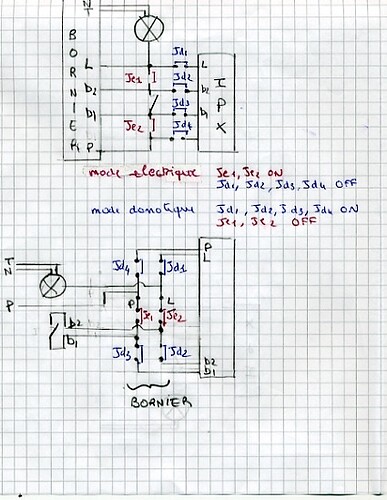 N
T
BORNIER
L
b2
b1
P
Je1
Je2
Jd1
Jd2
Jd3
Jd4
L
b2
b1
IPX
mode electrique Je1, Je2 ON
Jd1, Jd2, Jd3, Jd4 OFF
mode domotique Jd1, Jd2, Jd3, Jd4 ON
Je1, Je2 OFF
T
N
P
b2
b1
Jd4
Jd1
P
L
Je1
Je2
Jd3
Jd2
P
L
b2
b1
BORNIER